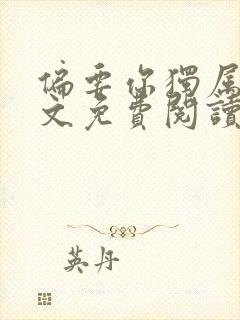 偏要你獨屬
文免費閱讀
英丹